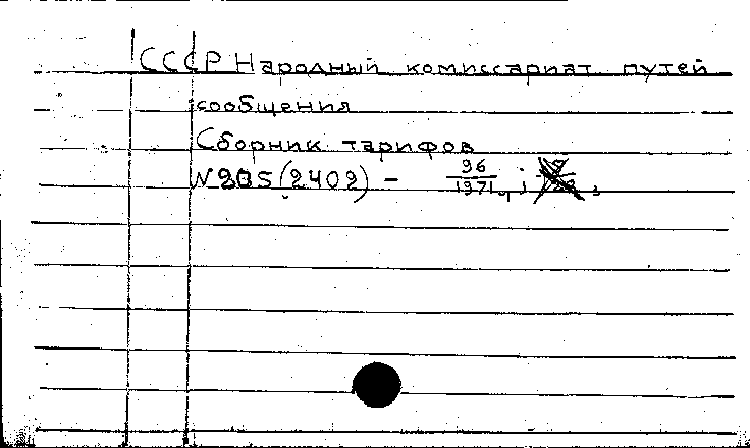 СССР Народный комиссариат путей
сообщения
Сборник тарифов
N 205 (2402) - 96/1971, ;